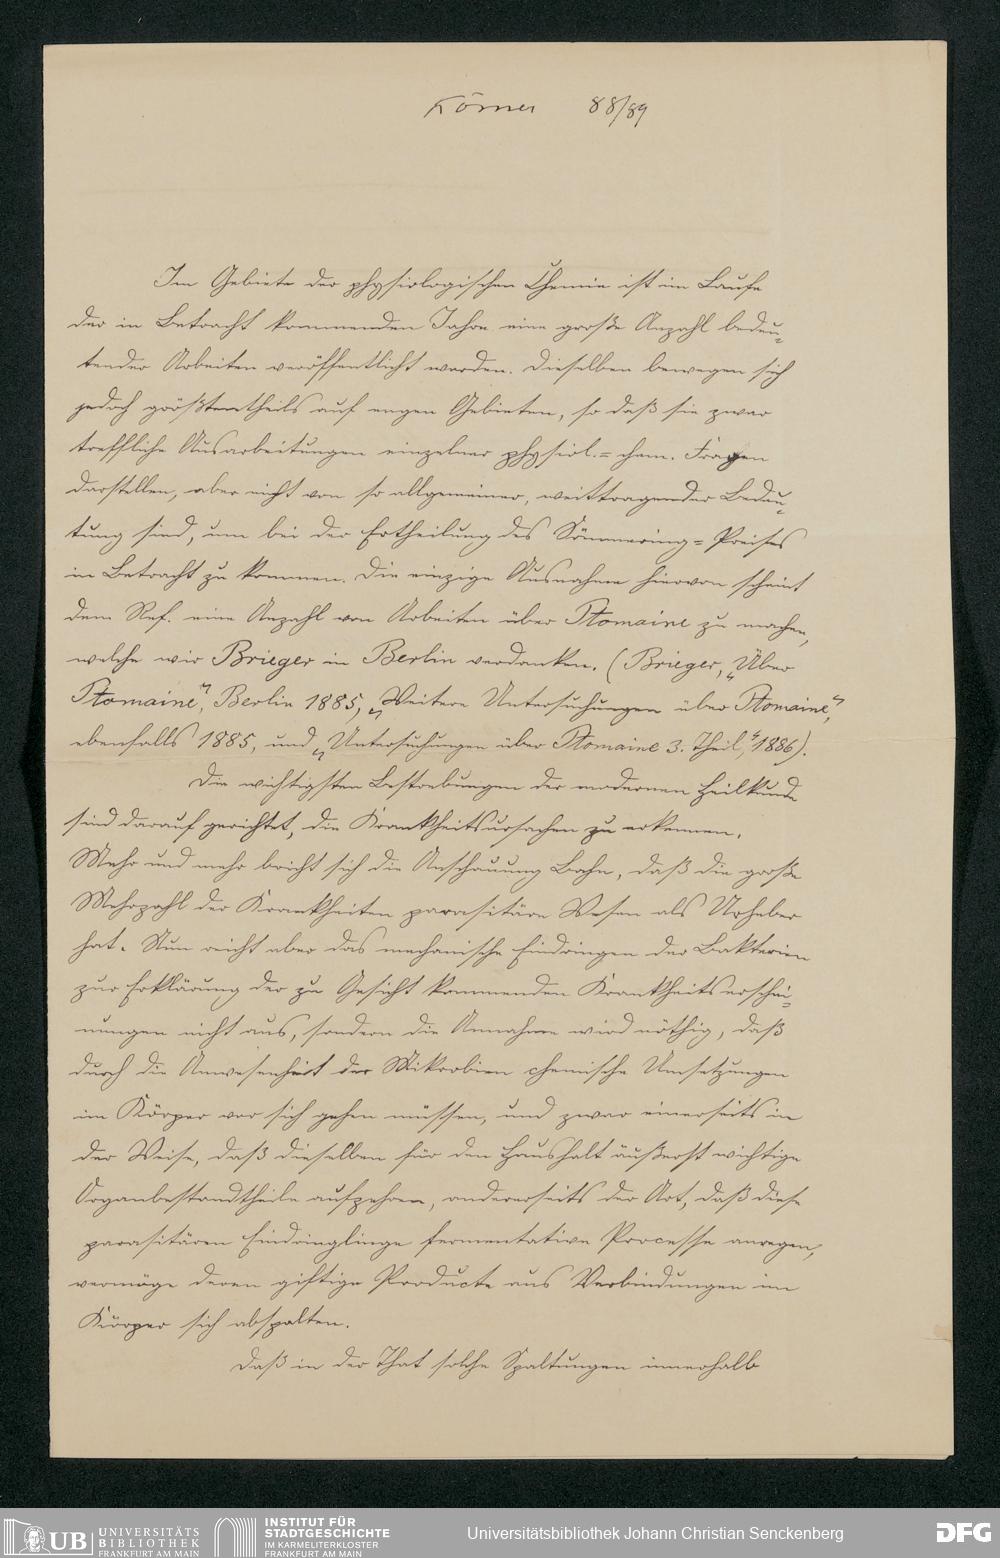 Körner 88/89
Im Gebiete der physiologischen Chemie ist im Laufe
der in Betracht kommenden Jahre eine große Anzahl bedeu-
tender Arbeiten veröffentlicht worden. Dieselben bewegen sich
jedoch größtentheils auf engen Gebieten, so daß sie zwar
treffliche Ausarbeitungen einzelner physiol.-chem. Fragen
darstellen, aber nicht von so allgemeiner, weittragender Bedeu-
tung sind, um bei der Ertheilung des Sömmering-Preises
in Betracht zu kommen. Die einzige Ausnahme hiervon scheint
dem Ref. eine Anzahl von Arbeiten über Ptomaine zu machen,
welche wir Brieger in Berlin verdanken. (Brieger, „Über
Ptomaine“, Berlin 1885, „Weitere Untersuchungen über Ptomaine“,
ebenfalls 1885, und „Untersuchungen über Ptomaine 3. Theil“, 1886).
Die wichtigsten Bestrebungen der modernen Heilkunde
sind darauf gerichtet, die Krankheitsursachen zu erkennen.
Mehr und mehr bricht sich die Anschauung Bahn, daß die große
Mehrzahl der Krankheiten parasitäre Wesen als Urheber
hat. Nun reicht aber das mechanische Eindringen der Bakterien
zur Erklärung der zu Gesicht kommenden Krankheitserschei-
nungen nicht aus, sondern die Annahme wird nöthig, daß
durch die Anwesenheit der Mikrobien chemische Umsetzungen
im Körper vor sich gehen müssen, und zwar einerseits in
der Weise, daß dieselben für den Haushalt äußerst wichtige
Organbestandtheile aufzehren, andererseits der Art, daß diese
parasitären Eindringlinge fermentative Processe anregen,
vermöge deren giftige Producte aus Verbindungen im
Körper sich abspalten.
Daß in der That solche Spaltungen innerhalb
UB UNIVERSITÄTS
BIBLIOTHEK
FRANKFURT AM MAIN
INSTITUT FÜR
STADTGESCHICHTE
IM KARMELITERKLOSTER
FRANKFURT AM MAIN
Universitätsbibliothek Johann Christian Senckenberg
DFG